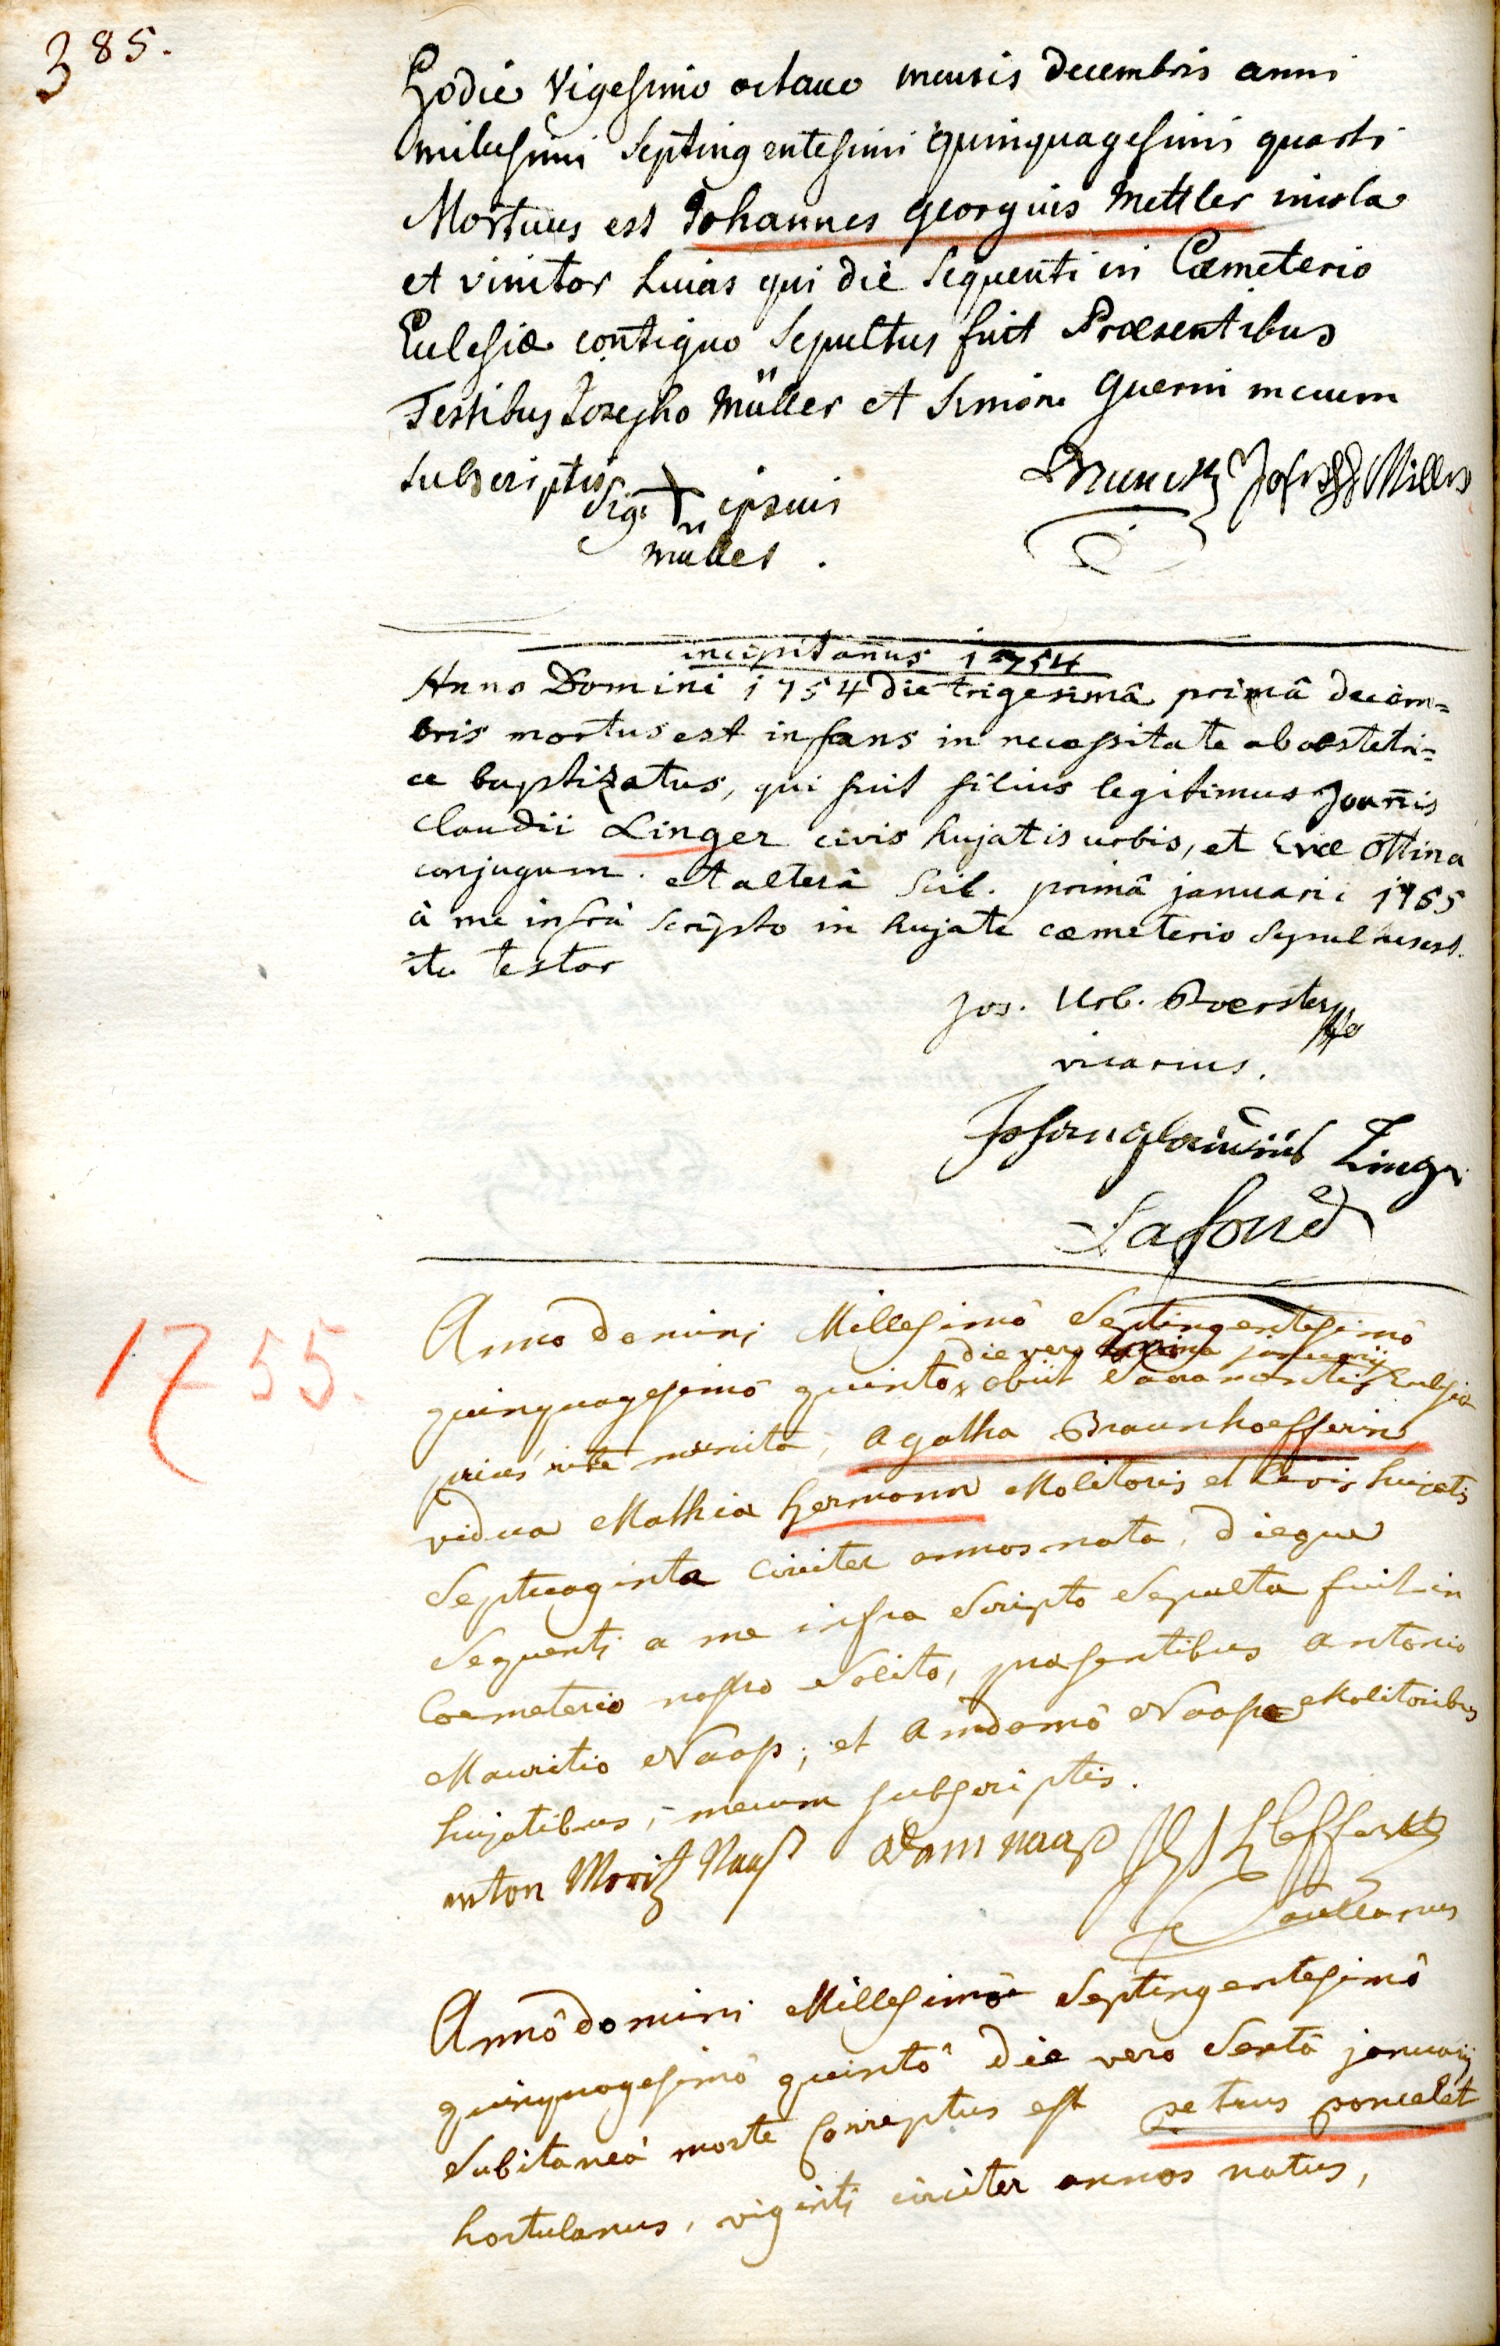 385.
Hodie Vigesimo octavo mensis decembris anni
millesimi Septingentesimi quinquagesimi quarti
Mortuus est Johannes georgius Mettler incola
et vinitor huias qui die sequenti in Cœmeterio
Eclesiæ contiguo Sepultus fuit Præsentibus
Testibus Josepho Müller et Simone Guerni mecum
subscriptis
Sig. + ipsius
müller .
Joseph Miller
incipit anus 1754
Anno Domini 1754 die trigesimâ primâ decem=
bris mortus est infans in necessitate ab obstetri=
ce baptizatus, qui fuit filius legitimus Joañis
Claudii Linger civis hujatis urbis, et Evæ Ottina
conjugum. et alterâ scil. primâ januarii 1755
à me infrà scripto in hujate cœmeterio sepultus est.
ita testor
Jos. Urb. Boerster
vicarius.
Linger
Lafond
1755.
Anno domini Millesimô Septingentesimô
die vero januarij
quinquagesimô quinto obiit Sacramentis Eclesiæ
prius rite munita, Agatha Braunhoefferin
vidua Mathiæ hermann Molitoris et Civis hujatis
Septuaginta Circiter annos nata, dieque
Sequenti a me infra Scripto Sepulta fuit in
Coemeterio nostro Solito, præsentibus antonio
Mauritio Naass, et Adamô Naass Molitoribus
hujatibus, mecum subscriptis.
anton Moritz Naaß adam naaß
Annô domini Millesimô Septingentesimô
quinquagesimô quintô die vero Sextâ januarij
Subitaneâ morte Correptus est petrus poncelet
hortulanus, viginti circiter annos natus,